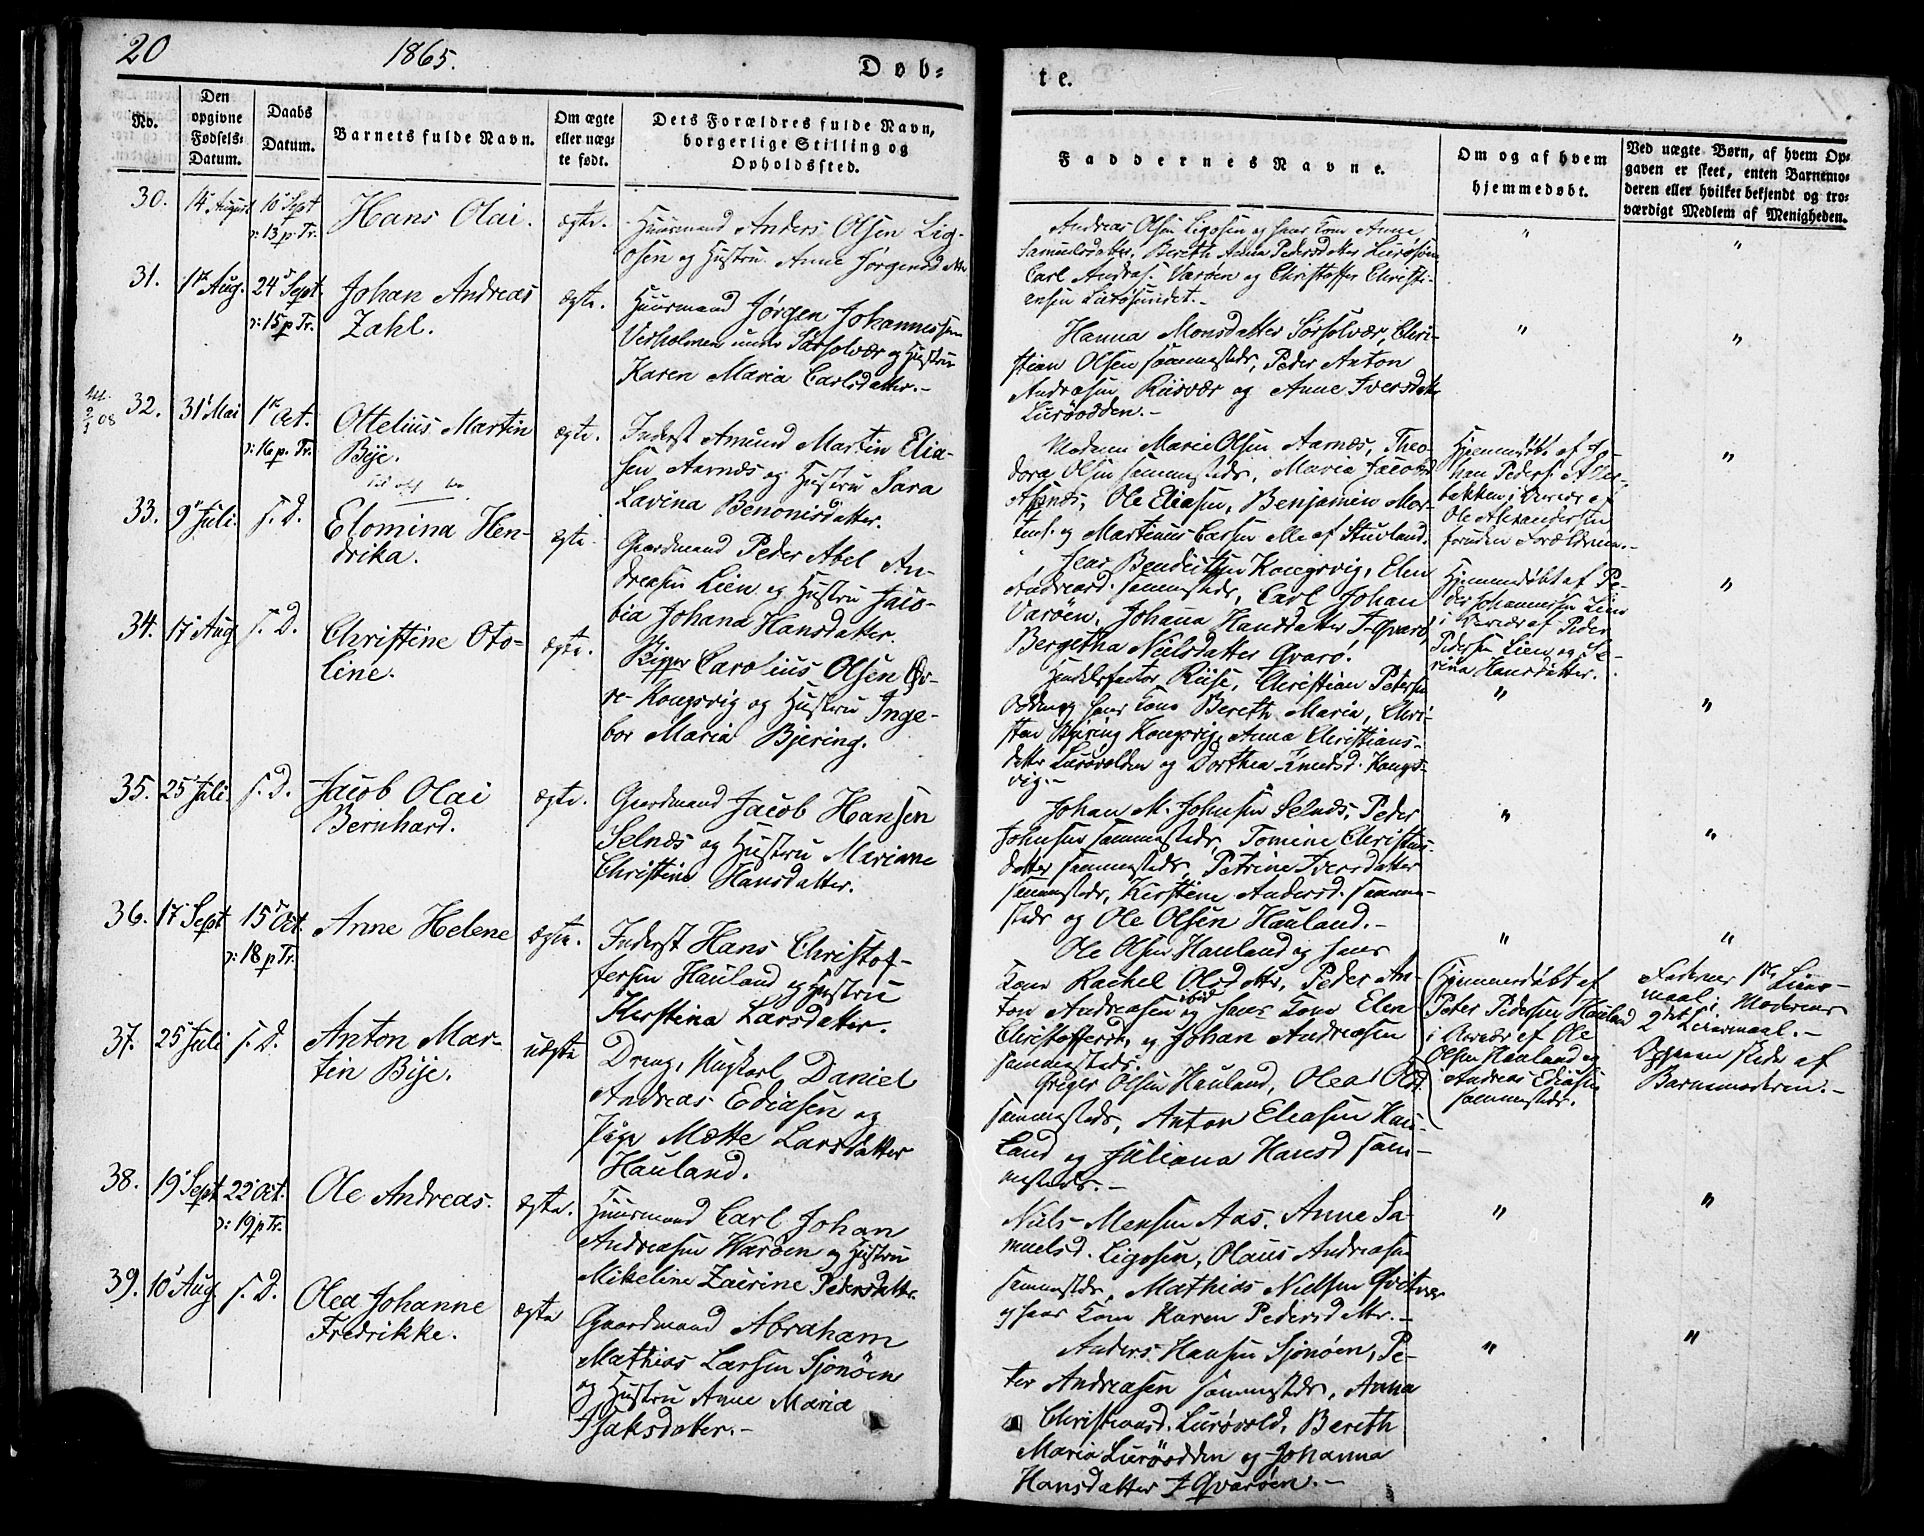 20
1865.
Døb-
te.
No.
Den opgivne Fødsels-Datum.
Daabs Datum.
Barnets fulde Navn.
Om ægte eller uægte født.
Dets Forældres fulde Navn, borgerlige Stilling og Opholdssted.
Faddernes Navne.
Om og af hvem hjemmedøbt.
Ved uægte Børn, af hvem Opgaven er skeet, enten Barnemoderen eller hvilket bekjendt og troværdigt Medlem af Menigheden.
30.
14 August
10 Sept
ɔ: 13 p. Tr.
Hans Olai.
ægte.
Huusmand Anders Olsen Lig-
osen og Hustru Anne Jørgensdatter
Andreas Olsen Ligosen og hans Kone Anne
Samuelsdatter, Bereth Anna Pedersdatter Lurøsun
Carl Andreas. Varøen og Christoffer Christi-
ensen Lurøsundet.-
"
"
31.
1 Aug.
24 Sept.
ɔ: 15 p Tr.
Johan Andreas
Zahl.
ægte.
Huusmand Jørgen Johannessen
Vedholmen under Sørsolvær og Hustru
Karen Maria Carlsdatter.-
Hanna Monsdatter Sørsolvær, Chri-
stian Olsen sammesteds, Peder Anton
Andreasen Risvær og Anne Iversdatter
Lurøodden.-
"
"
32.
31 Mai
1 Oct.
ɔ: 16 p. Tr.
Ottelius Martin
Bye.
ægte.
Inderst Amund Martin Elia-
sen Aarnæs og Hustru Sara
Lavina Benonisdatter.
Madam Marie Olsen Aarnæs, Theo-
dora Olsen sammesteds, Maria Jacobsd
Ole Eliasen, Benjamin Mor-
tens. og Martinus Larsen alle af Stuvland.
Hjemmedøbt af Jo-
han Peders.
bakken i Overvær af
Ole Alexandersen
foruden Forældrene.-
"
33.
9 Juli.
s. D.
Elomina Hen-
drika.
ægte.
Gaardmand Peder Abel An-
dreasen Lien og Hustru Jaco-
bia Johana Hansdatter.
Jens Bendictsen Kongsvig, Elen
Andreasd. sammesteds, Carl Johan
Varøen, Johana Hansdatter I. Qvarø,
Bergitha Nielsdatter Qvarø.
Hjemmedøbt af Pe-
der Johannessen Lien
i Overvær af Peder
Pedersen Lien og Se-
rina Hansdatter.
"
34.
17 Aug
s. D.
Christine Oto-
line.
ægte.
Carolius Olsen Øv-
re-Kongsvig og Hustru Inge-
bor Maria Bjering.
Handelsfactor Riise, Christian Petersen
Odden og hans Kone Bereth Maria, Chri-
sten Bjering Kongsvig, Anna Christians-
datter Lurøvolden og Dorthea Knudsd. Kongs-
vig.-
"
"
35.
25 Juli.
s. D.
Jacob Olai
Bernhard.
ægte.
Gaardmand Jacob Hansen
Selnæs og Hustru Mariane
Christine Hansdatter.
Johan M. Johnsen Selnæs, Peder
Johnsen sammesteds, Tomine Christens-
datter sammesteds, Petrine Iversdatter
sammesteds, Kirstine Andersd. samme-
steds og Ole Olsen Hauland.-
"
"
36.
17 Sept
15 Oct.
ɔ: 18 p Tr.
Anne Helene
ægte.
Inderst Hans Christof-
fersen Hauland og Hustru
Kerstina Larsdatter.
Ole Olsen Hauland og hans
Kone Rachel Olsdatter, Peder An-
ton Andreasen ibid og hans Kone Elen
Christoffersd. og Johan Andreasen
sammesteds.
"
"
37.
25 Juli
s. D.
Anton Mar-
tin Bye.
uægte
Dreng, Huskarl Daniel
Andreas Ediasen og
Pige Mætte Larsdatter
Hauland.
Griger Olsen Hauland, Olea Olsd.
sammesteds, Anton Eleasen Hau-
land og Juliana Hansd sam-
mesteds.-
Hjemmedøbt af
Peter Pedersen Hauland
i Overvær af Ole
Olsen Hauland og
Andreas Ediasen
sammesteds.
Faderens 1ste Leier-
maal, Moderens
2det Leiermaal.-
Opgaven skede af
Barnemoderen.-
38.
19 Sept
22 Oct.
ɔ: 19 p Tr.
Ole Andreas.
ægte.
Huusmand Carl Johan
Andreasen Warøen og Hustru
Mikeline Zaurine Pedersdatter.
Niels Monsen Aas, Anne Sa-
muelsd. Ligosen, Olaus Andreasen
sammesteds, Mathias Nielsen Qvitvær
og hans Kone Karen Pedersdatter.-
"
"
39.
10 Aug.
s. D.
Olea Johanne
Fredrikke.
ægte
Gaardmand Abraham
Mathias Larsen Sjonøen
og Hustru Anne Maria
Isaksdatter.-
Anders Hansen Sjonøen, Pe-
ter Andreasen sammesteds, Anna
Christiansd. Lurøvold, Bereth
Maria Lurøodden og Johanna
Hansdatter I Qvarøen.-
"
"